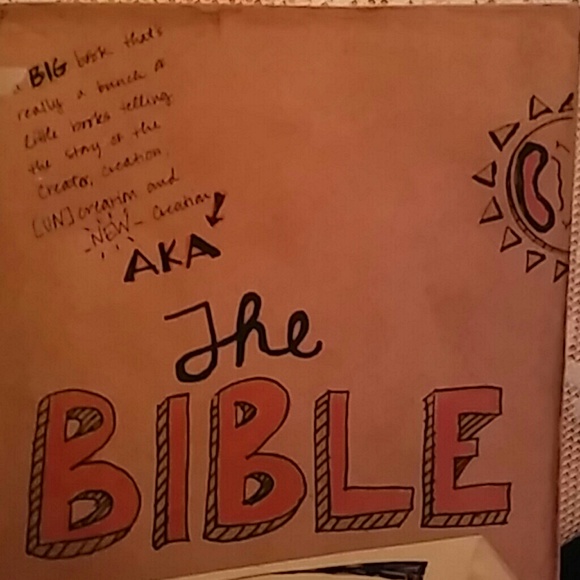 a BIG book that's
really a bunch of
little books telling
the story of the
Creator, creation,
[UN]creation and
-NEW- creation
AKA
The
BIBLE